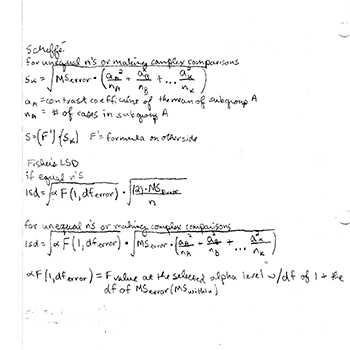 Scheffé
for unequal n's or making complex comparisons
Sk = √MSerror • (aA²/nA + aB²/nB + ... aK²/nK)
aA = contrast coefficient of the mean of subgroup A
nA = # of cases in subgroup A
S = (F')(Sk) F' = formula on other side
Fisher's LSD
if equal n's
lsd = √α F(1, dferror) • √(2)•MSerror/n
for unequal n's or making complex comparisons
lsd = √α F(1, dferror) • √MSerror • (aA²/nA + aB²/nB + ... aK²/nK)
α F(1, dferror) = F value at the selected alpha level w/ df of 1 + the
df of MSerror (MSwithin)